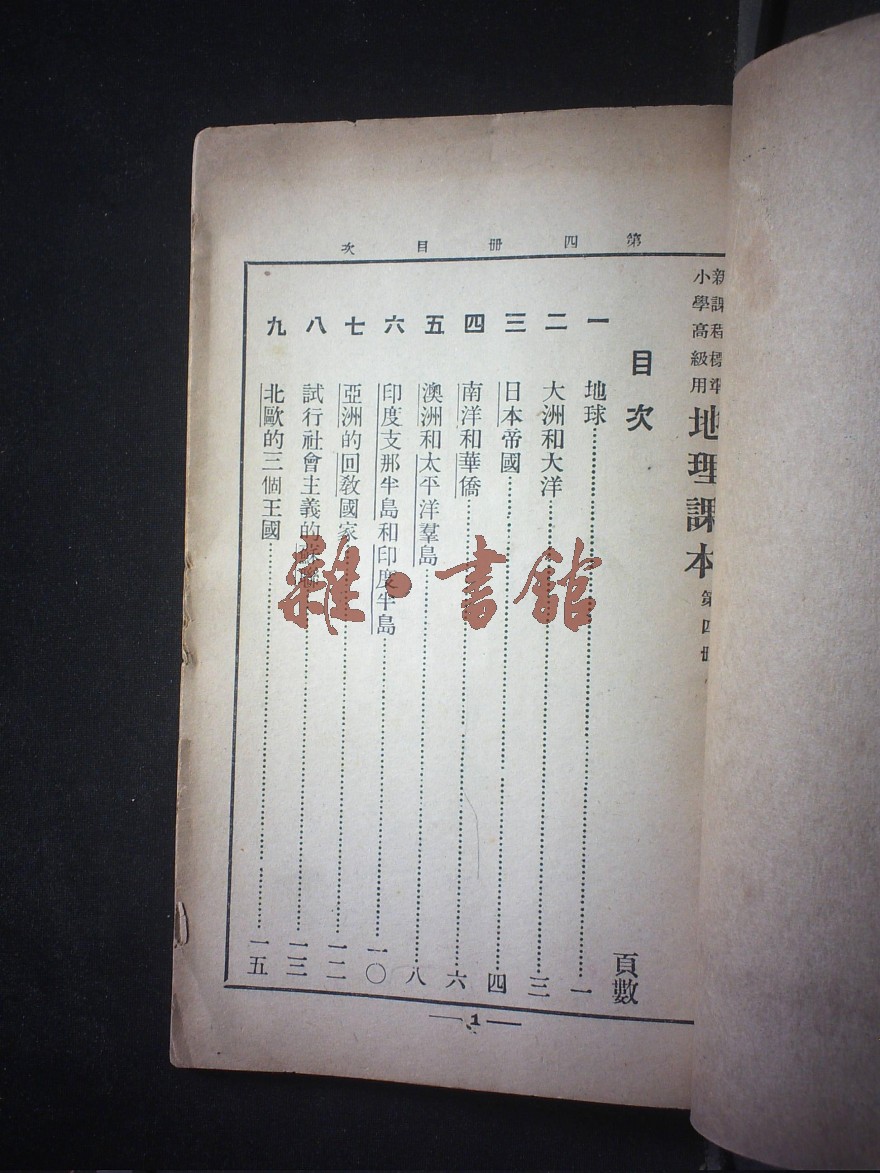 第四冊目次
新課程標準
小學高級用
地理課本
第四冊
目次
頁數
一 地球 一
二 大洲和大洋 三
三 日本帝國 四
四 南洋和華僑 六
五 澳洲和太平洋羣島 八
六 印度支那半島和印度半島 一〇
七 亞洲的回教國家 一二
八 試行社會主義的 一三
九 北歐的三個王國 一五
1
雜·書館